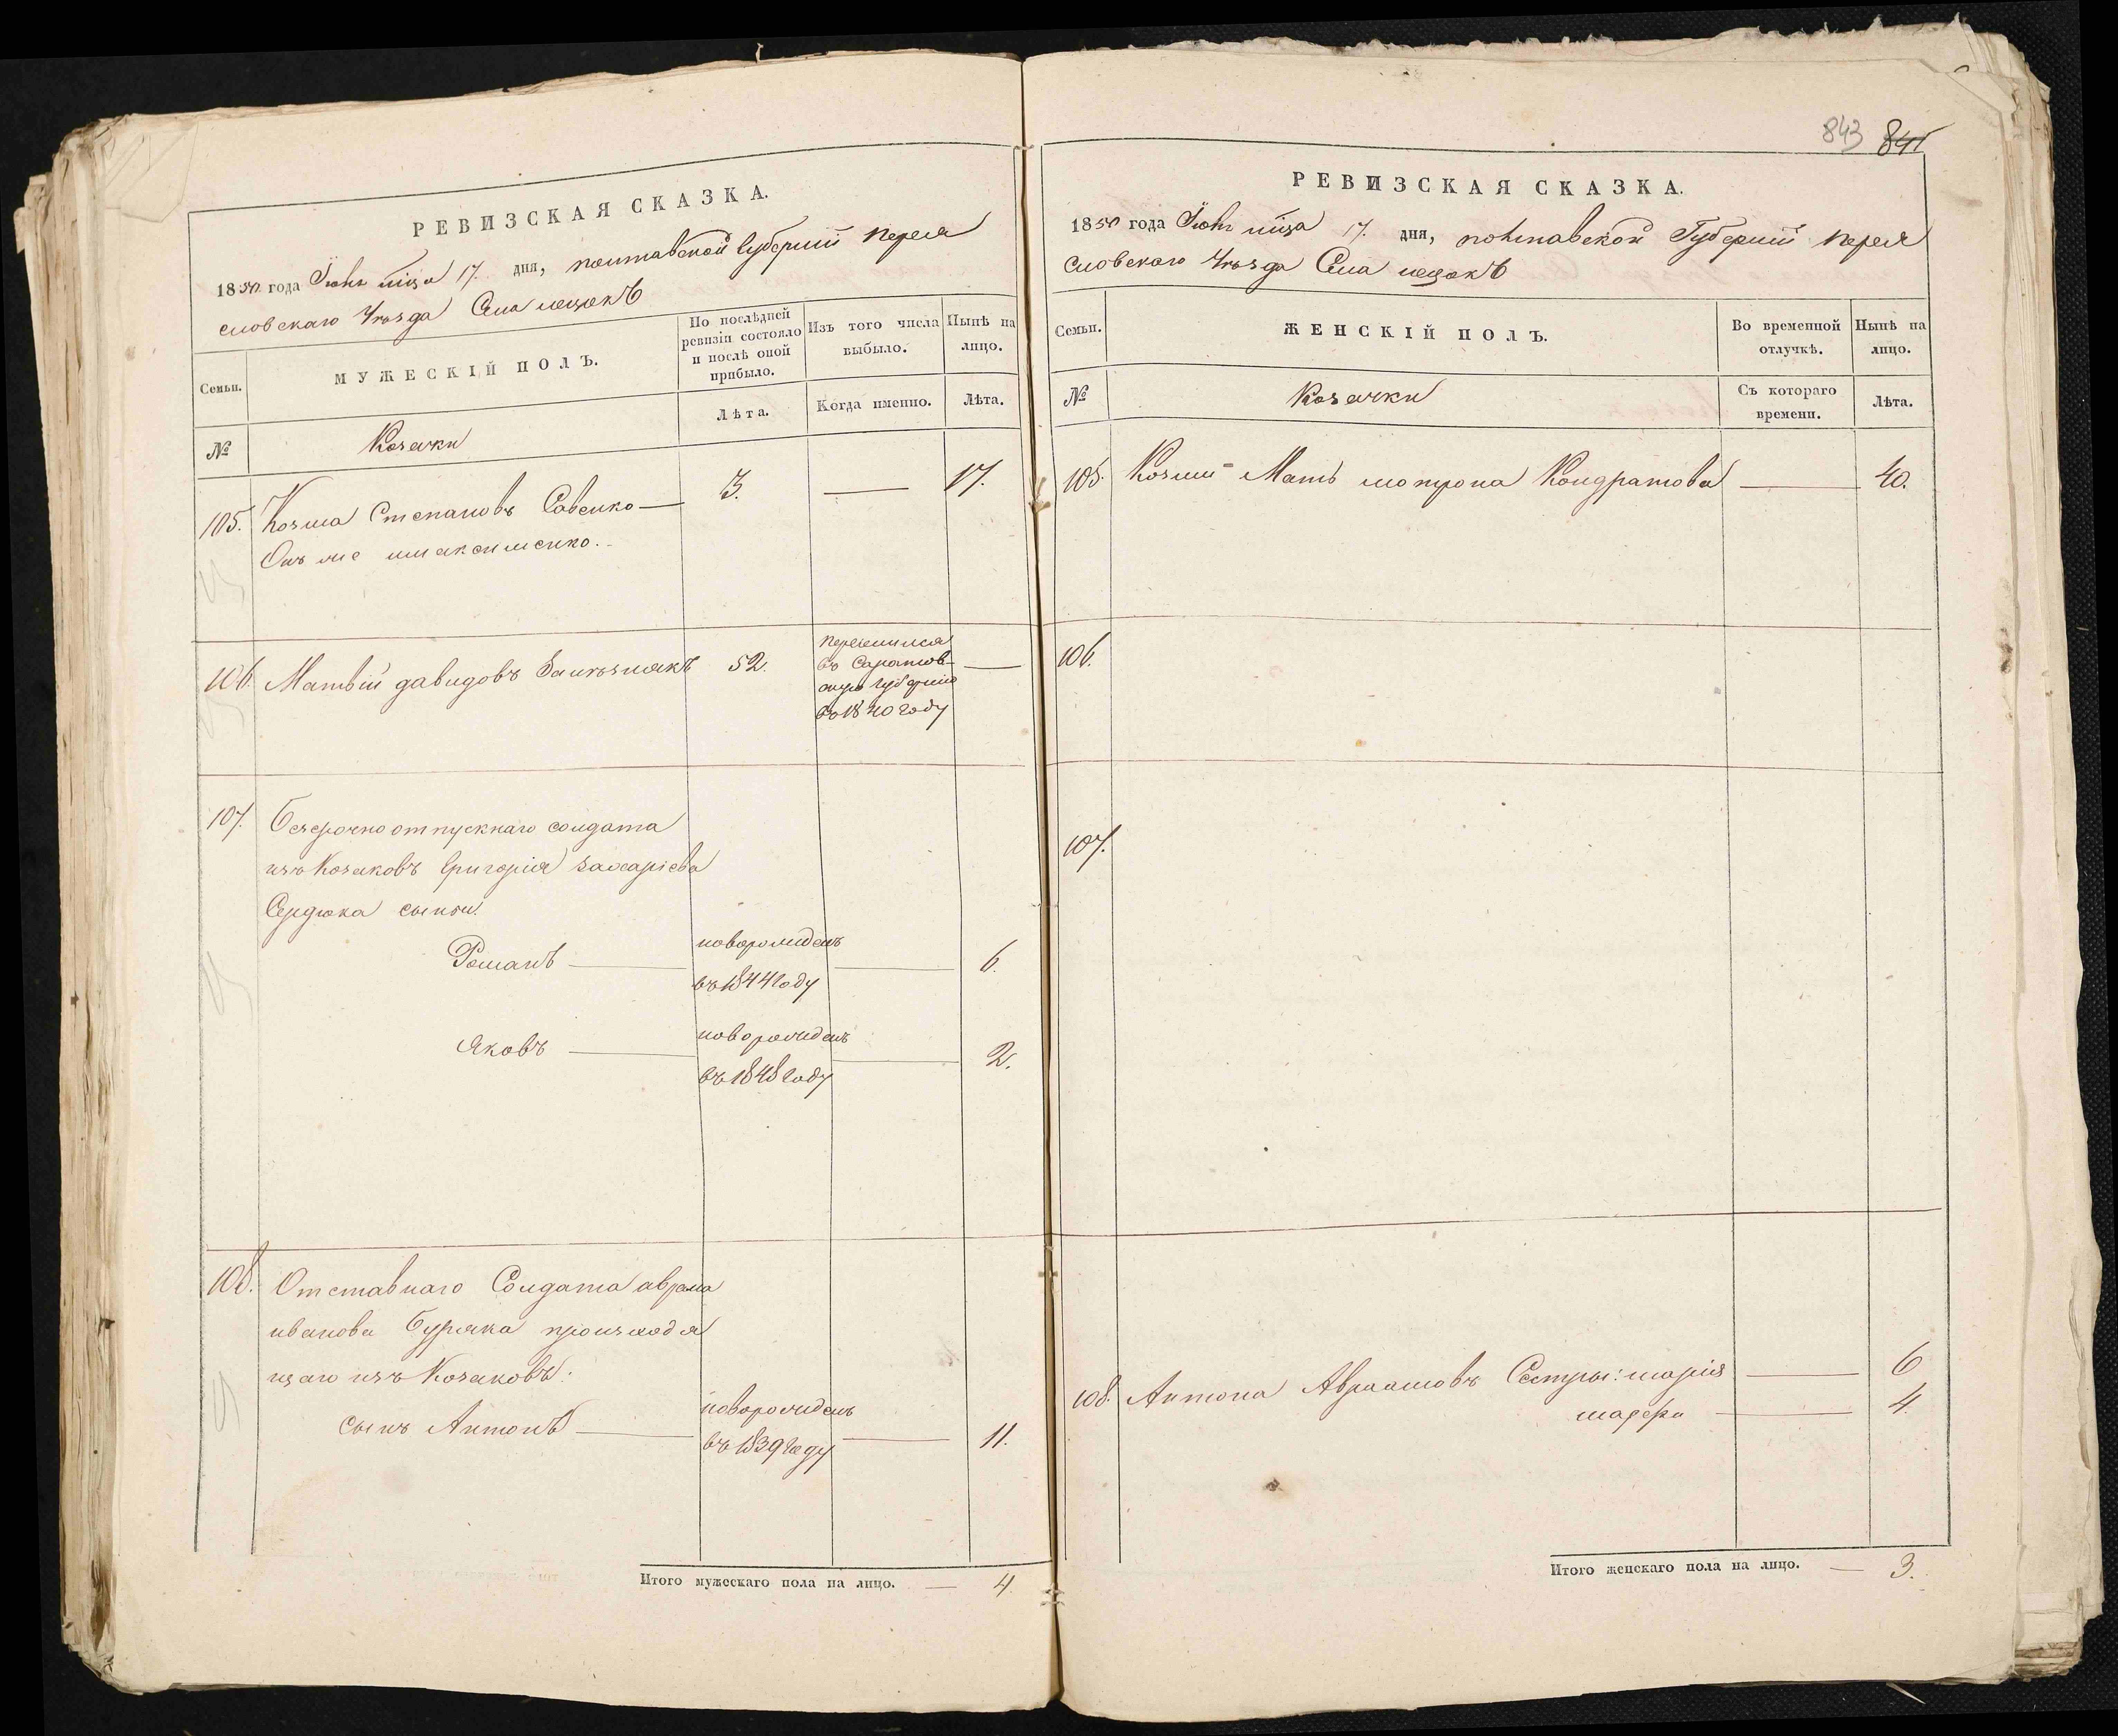 РЕВИЗСКАЯ СКАЗКА.
1850 года Іюнь мѣца 17. дня, полтавской губерніи перея
словскаго уѣзда Села
Семьи.
МУЖЕСКІЙ ПОЛЪ.
По послѣдней ревизіи состояло и послѣ оной прибыло.
Изъ того числа выбыло.
Нынѣ на лицо.
№
Козаки
Лѣта.
Когда именно.
Лѣта.
105. Козма Степановъ Савенко — 3. — 17.
Онъ же максименко.
106. Матвій давидовъ 52.
переселился
въ Саратов-
скую губернію
въ 1840 году
—
107. безсрочно отпускнаго солдата
изъ Козаковъ Григорія захаріева
Сердюка сыны
Романъ — новорожденъ — 6.
въ 1844 году
Яковъ — новорожденъ — 2.
въ 1848 году
108. Отставнаго Солдата аврама
иванова Буряка происходя
щаго изъ Козаковъ:
сынъ Антонъ — новорожденъ — 11.
въ 1839 году
Итого мужескаго пола на лицо. — 4.
843 841
РЕВИЗСКАЯ СКАЗКА.
1850 года Іюнь мѣца 17. дня, полтавской Губерніи перея
словскаго уѣзда Села
Семьи.
ЖЕНСКІЙ ПОЛЪ.
Во временной отлучкѣ.
Нынѣ на лицо.
№
Козачки
Съ котораго времени.
Лѣта.
105. Козми Мать мотрона Кондратова — 40.
106.
107.
108. Антона Авраамовъ Сестры: марія — 6
— 4.
Итого женскаго пола на лицо. — 3.